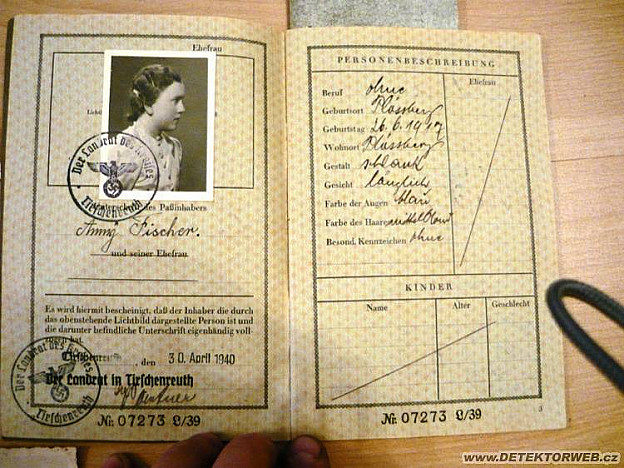 Ehefrau
Der Landrat des Kreises
Tirschenreuth
des Paßinhabers
Anny Fischer.
und seiner Ehefrau
Es wird hiermit bescheinigt, daß der Inhaber die durch
das obenstehende Lichtbild dargestellte Person ist und
die darunter befindliche Unterschrift eigenhändig voll-
zogen hat.
Tirschenreuth, den 30. April 1940
Der Landrat in Tirschenreuth
Der Landrat des Kreises
Tirschenreuth
Nr. 07273 Q/39
PERSONENBESCHREIBUNG
Ehefrau
Beruf ohne
Geburtsort Plössberg
Geburtstag 26.6.1917
Wohnort Plössberg
Gestalt schlank
Gesicht länglich
Farbe der Augen blau
Farbe des Haares mittelblond
Besond. Kennzeichen ohne
KINDER
Name Alter Geschlecht
3
Nr. 07273 Q/39
www.DETEKTORWEB.cz